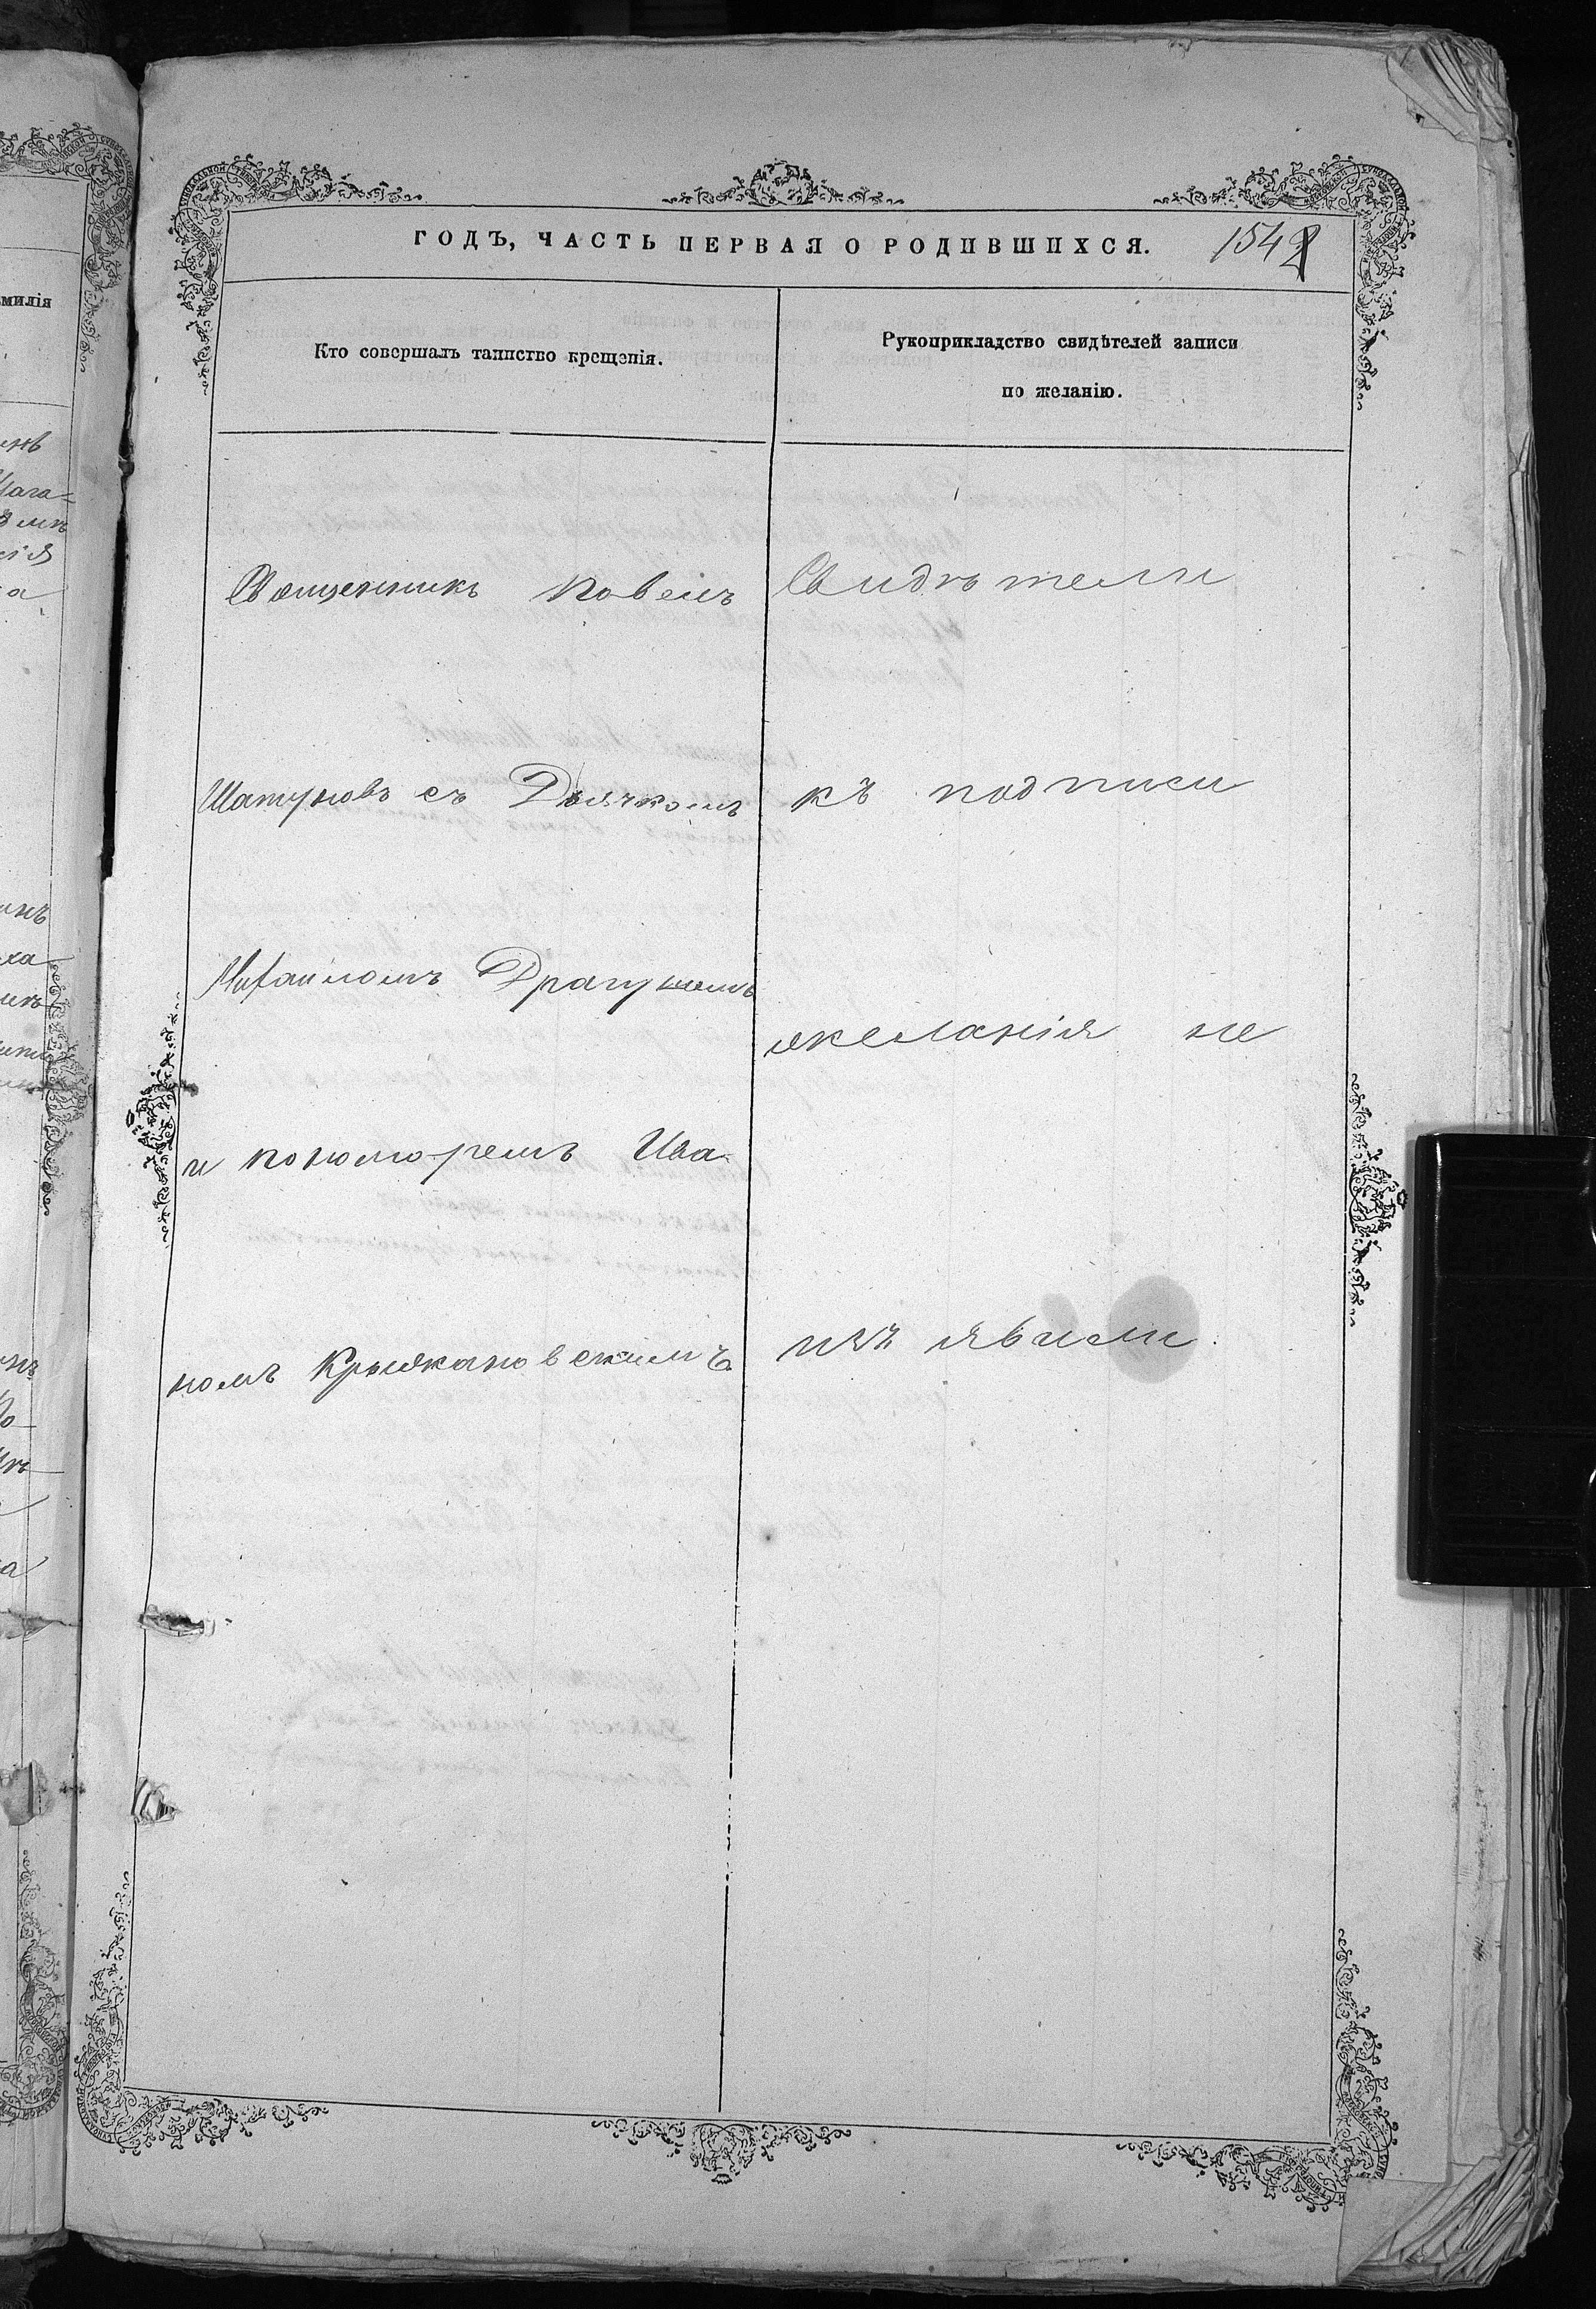 ГОДЪ, ЧАСТЬ ПЕРВАЯ О РОДИВШИХСЯ.
1542
Кто совершалъ таинство крещенія.
Рукоприкладство свидѣтелей записи
по желанію.
Священникъ Павелъ
Шатуновъ съ Дьячкомъ
Михаиломъ Драгуномъ
и пономоремъ Ива
номъ Крыжановскимъ
Свидѣтели
къ подписи
желанія не
изъявили
милія